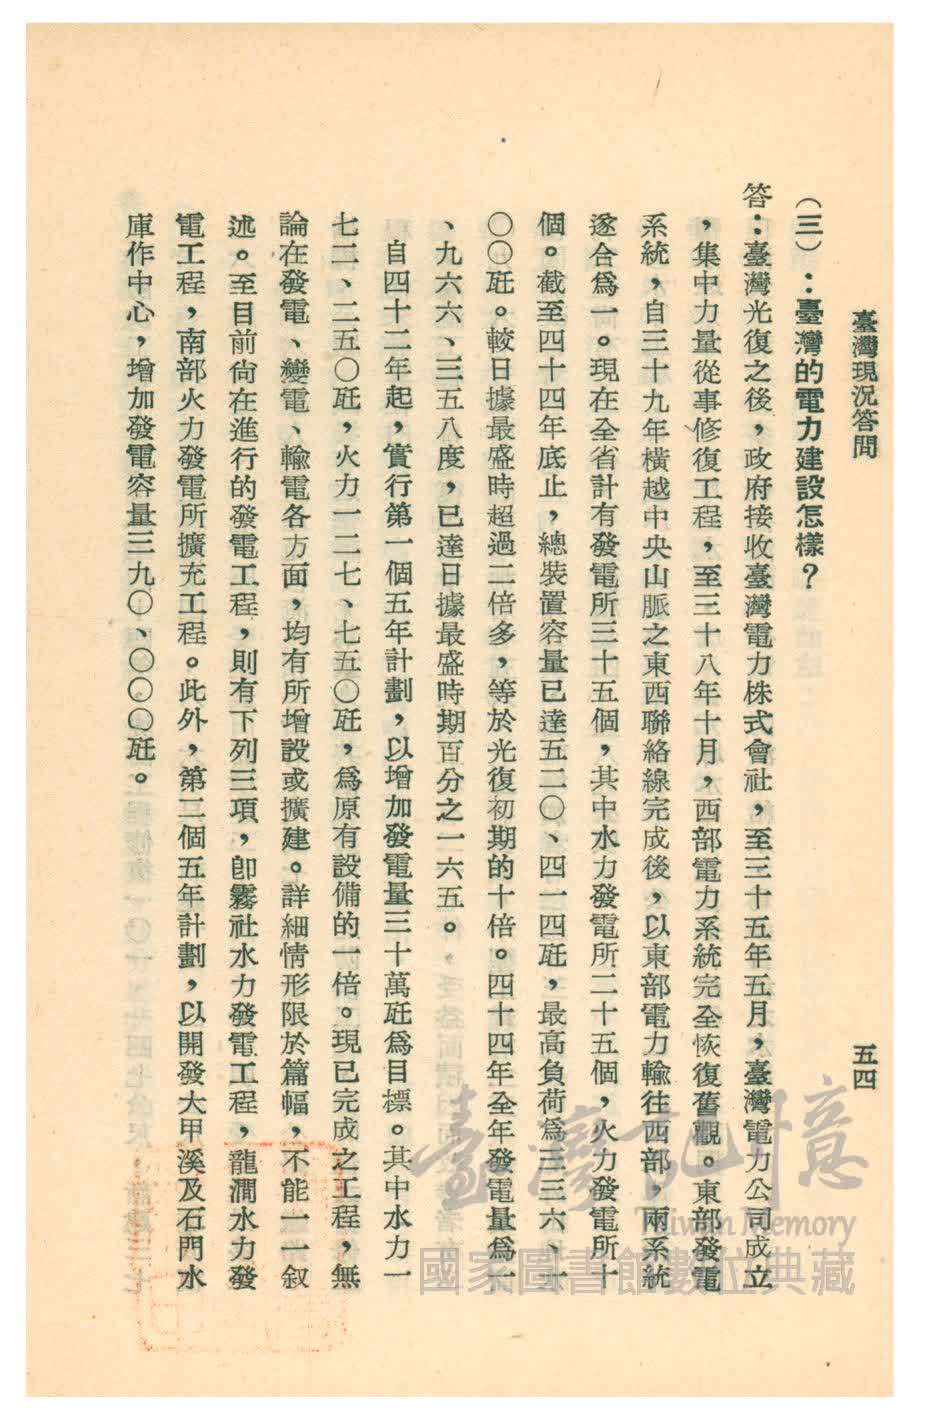 臺灣現況答問
五四
（三）：臺灣的電力建設怎樣？
答：臺灣光復之後，政府接收臺灣電力株式會社，至三十五年五月，臺灣電力公司成立
，集中力量從事修復工程，至三十八年十月，西部電力系統完全恢復舊觀。東部發電
系統，自三十九年橫越中央山脈之東西聯絡線完成後，以東部電力輸往西部，兩系統
遂合爲一。現在全省計有發電所三十五個，其中水力發電所二十五個，火力發電所十
個。截至四十四年底止，總裝置容量已達五二〇、四一四瓩，最高負荷爲三三六、一
〇〇瓩。較日據最盛時超過二倍多，等於光復初期的十倍。四十四年全年發電量爲一
、九六六、三五八度，已達日據最盛時期百分之一六五。
自四十二年起，實行第一個五年計劃，以增加發電量三十萬瓩爲目標。其中水力一
七二、二五〇瓩，火力一二七、七五〇瓩，爲原有設備的一倍。現已完成之工程，無
論在發電、變電、輸電各方面，均有所增設或擴建。詳細情形限於篇幅，不能一一叙
述。至目前尙在進行的發電工程，則有下列三項，卽霧社水力發電工程，龍澗水力發
電工程，南部火力發電所擴充工程。此外，第二個五年計劃，以開發大甲溪及石門水
庫作中心，增加發電容量三九〇、〇〇〇瓩。
臺灣記憶
Taiwan Memory
國家圖書館數位典藏